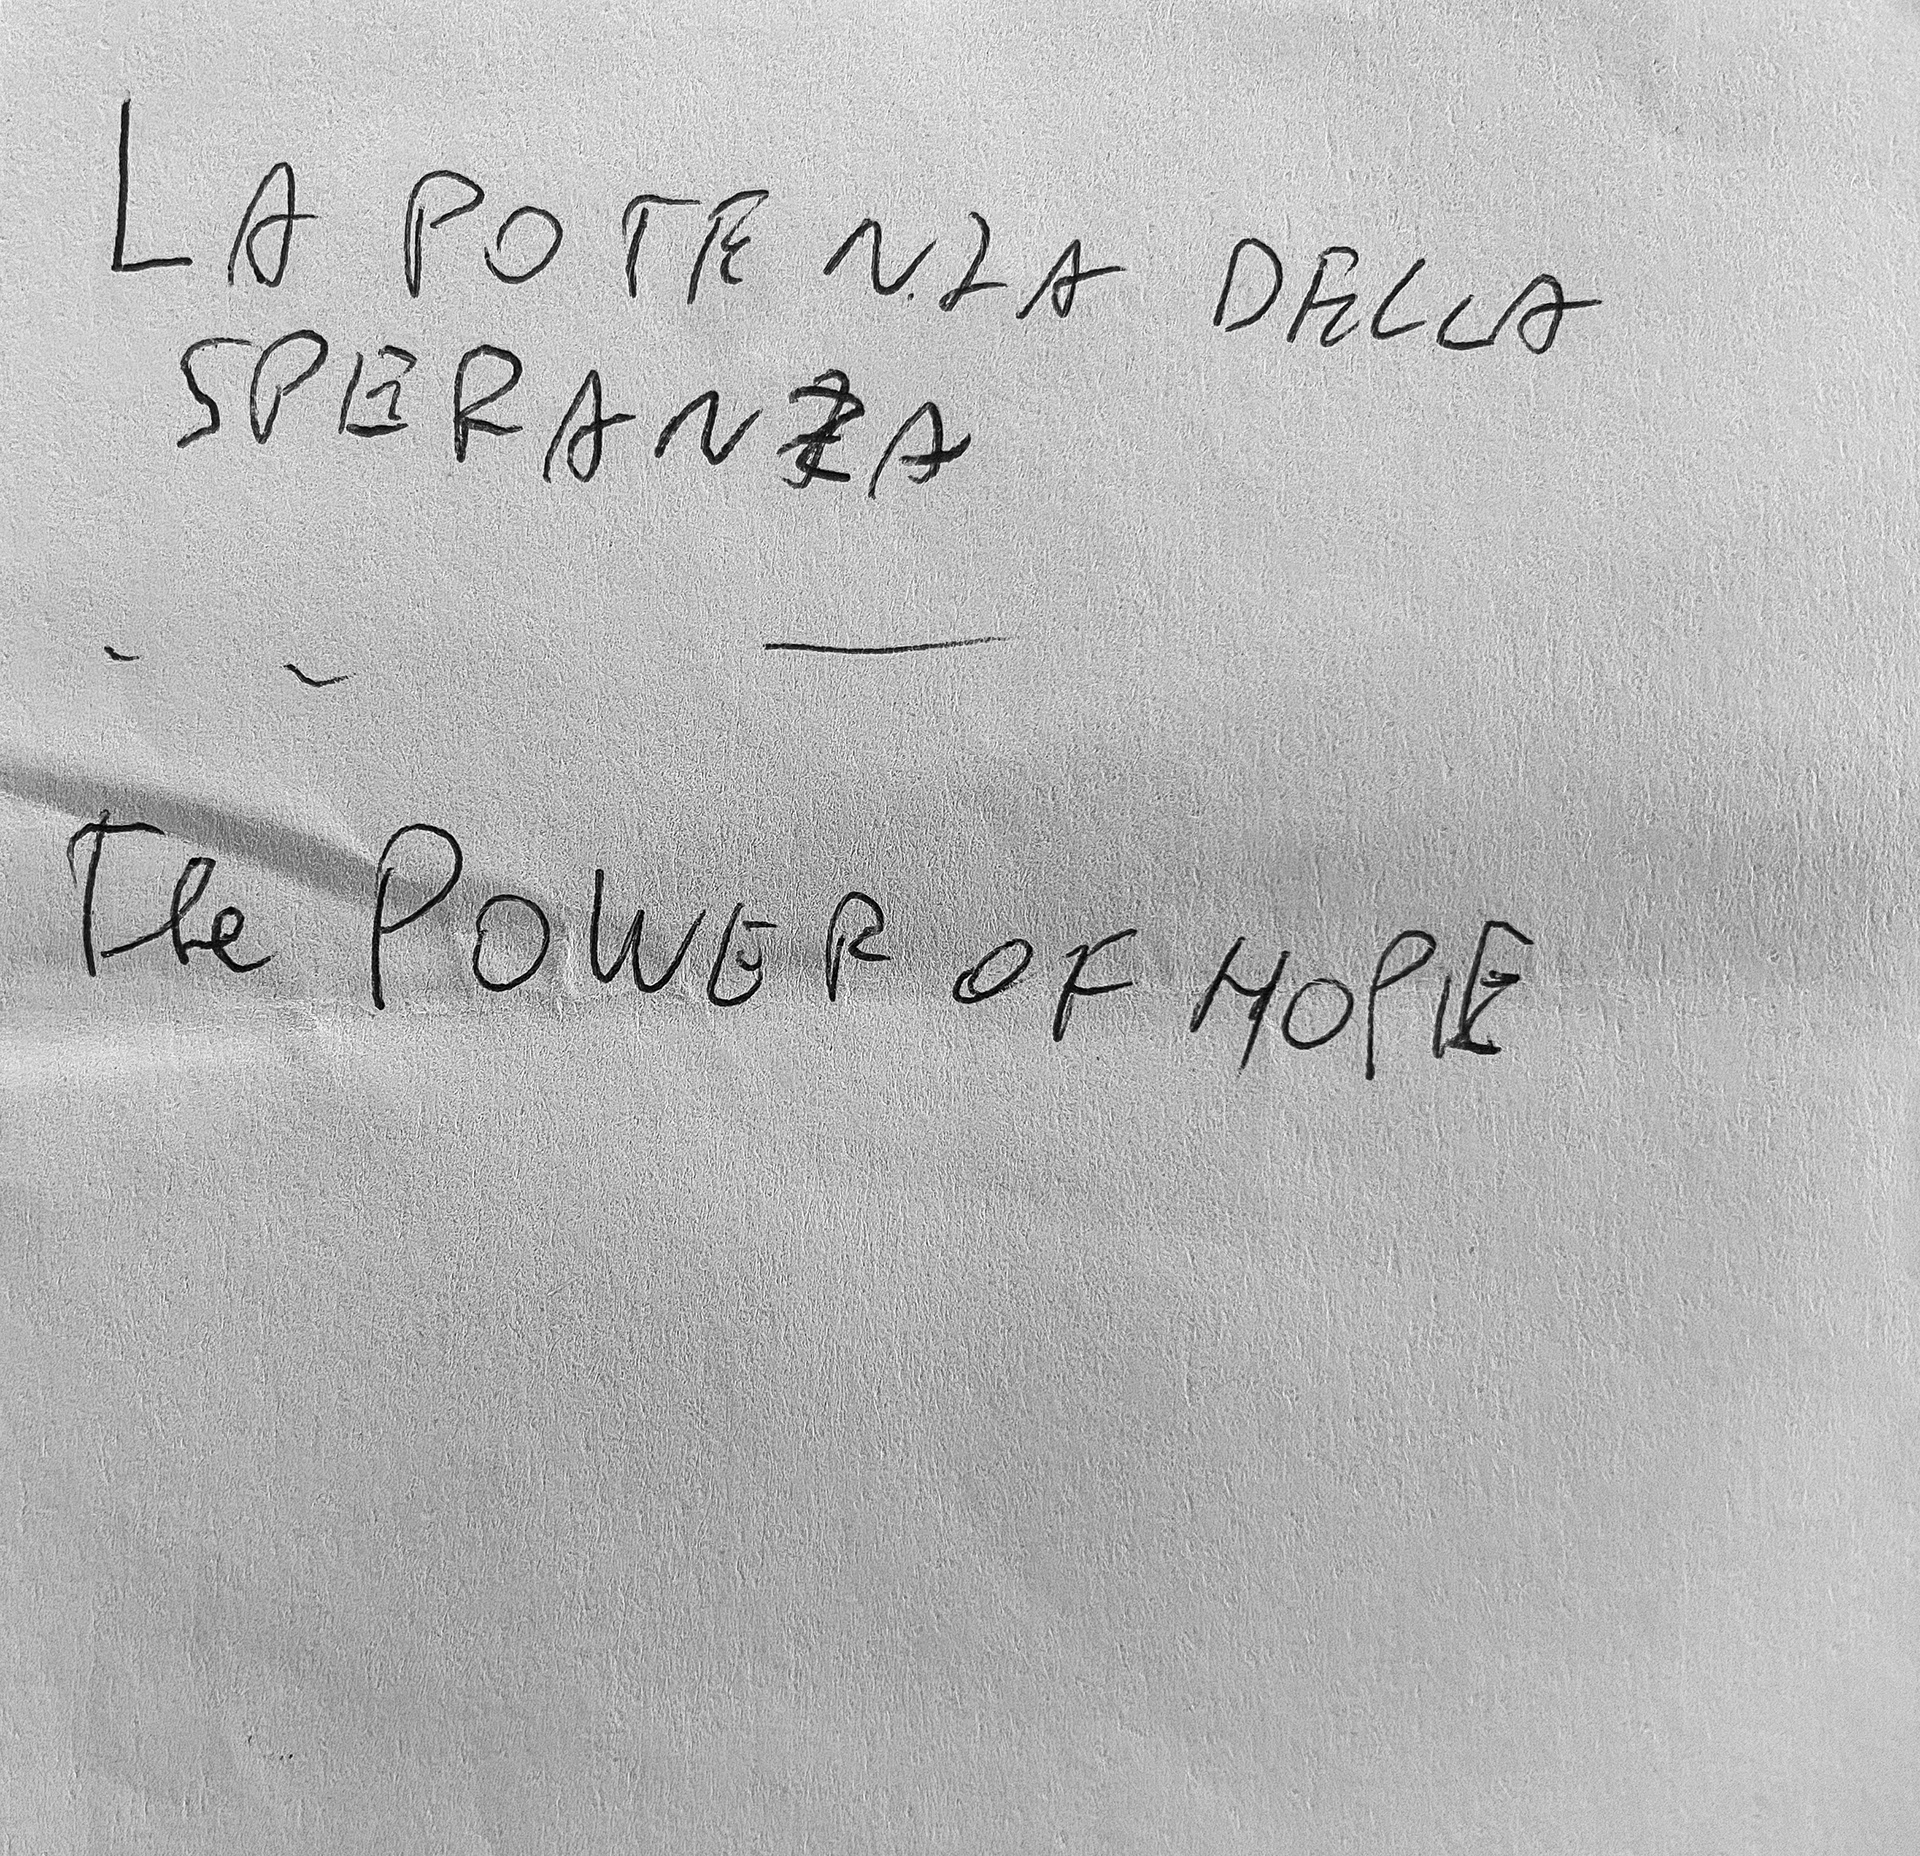 LA POTENZA DELLA
SPERANZA
The POWER OF HOPE